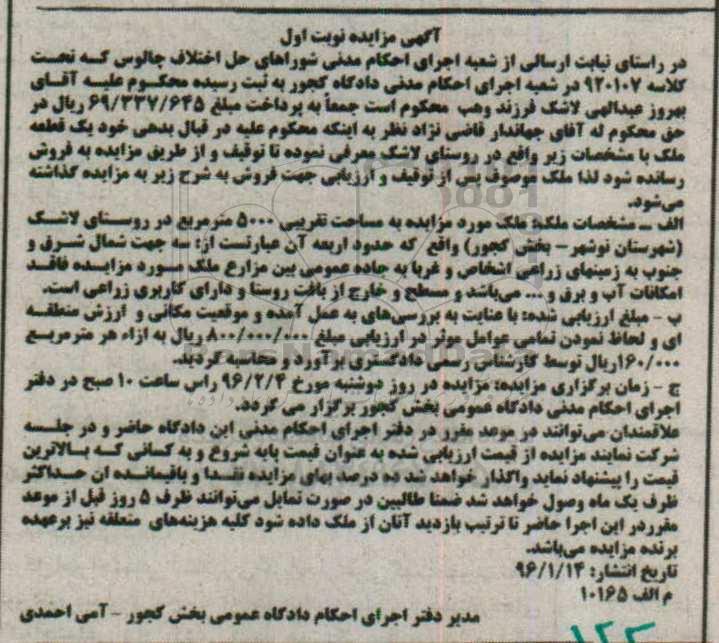 آگهی مزایده نوبت اول
در راستای نیابت ارسالی از شعبه اجرای احکام مدنی شوراهای حل اختلاف چالوس که تحت
کلاسه ۹۲۰۱۰۷ در شعبه اجرای احکام مدنی دادگاه کجور به ثبت رسیده محکوم علیه آقای
بهروز عبدالهی لاشک فرزند وهب محکوم است جمعاً به پرداخت مبلغ ۶۹/۳۳۷/۶۴۵ ریال در
حق محکوم له آقای جهاندار قاضی نژاد نظر به اینکه محکوم علیه در قبال بدهی خود یک قطعه
ملک با مشخصات زیر واقع در روستای لاشک معرفی نموده تا توقیف و از طریق مزایده به فروش
رسانده شود لذا ملک موصوف پس از توقیف و ارزیابی جهت فروش به شرح زیر به مزایده گذاشته
می‌شود.
الف – مشخصات ملک: ملک مورد مزایده به مساحت تقریبی ۵۰۰۰ مترمربع در روستای لاشک
(شهرستان نوشهر – بخش کجور) واقع که حدود اربعه آن عبارتست از: سه جهت شمال شرق و
جنوب به زمینهای زراعی اشخاص و غربا به جاده عمومی بین مزارع ملک مورد مزایده فاقد
امکانات آب و برق و ... می‌باشد و مسطح و خارج از بافت روستا و دارای کاربری زراعی است.
ب – مبلغ ارزیابی شده: با عنایت به بررسی‌های به عمل آمده و موقعیت مکانی و ارزش منطقه
ای و لحاظ نمودن تمامی عوامل موثر در ارزیابی مبلغ ۸۰۰/۰۰۰/۰۰۰ ریال به ازاء هر مترمربع
۱۶۰/۰۰۰ریال توسط کارشناس رسمی دادگستری برآورد و محاسبه گردید.
ج – زمان برگزاری مزایده: مزایده در روز دوشنبه مورخ ۹۶/۲/۴ راس ساعت ۱۰ صبح در دفتر
اجرای احکام مدنی دادگاه عمومی بخش کجور برگزار می گردد.
علاقمندان می‌توانند در موعد مقرر در دفتر اجرای احکام مدنی این دادگاه حاضر و در جلسه
شرکت نمایند مزایده از قیمت ارزیابی شده به عنوان قیمت پایه شروع و به کسانی که بالاترین
قیمت را پیشنهاد نماید واگذار خواهد شد ده درصد بهای مزایده نقدا و باقیمانده ان حداکثر
ظرف یک ماه وصول خواهد شد ضمنا طالبین در صورت تمایل می‌توانند ظرف ۵ روز قبل از موعد
مقرردر این اجرا حاضر تا ترتیب بازدید آنان از ملک داده شود کلیه هزینه‌های متعلقه نیز برعهده
برنده مزایده می‌باشد.
تاریخ انتشار: ۹۶/۱/۱۴
م الف ۱۰۱۶۵
مدیر دفتر اجرای احکام دادگاه عمومی بخش کجور – آمی احمدی